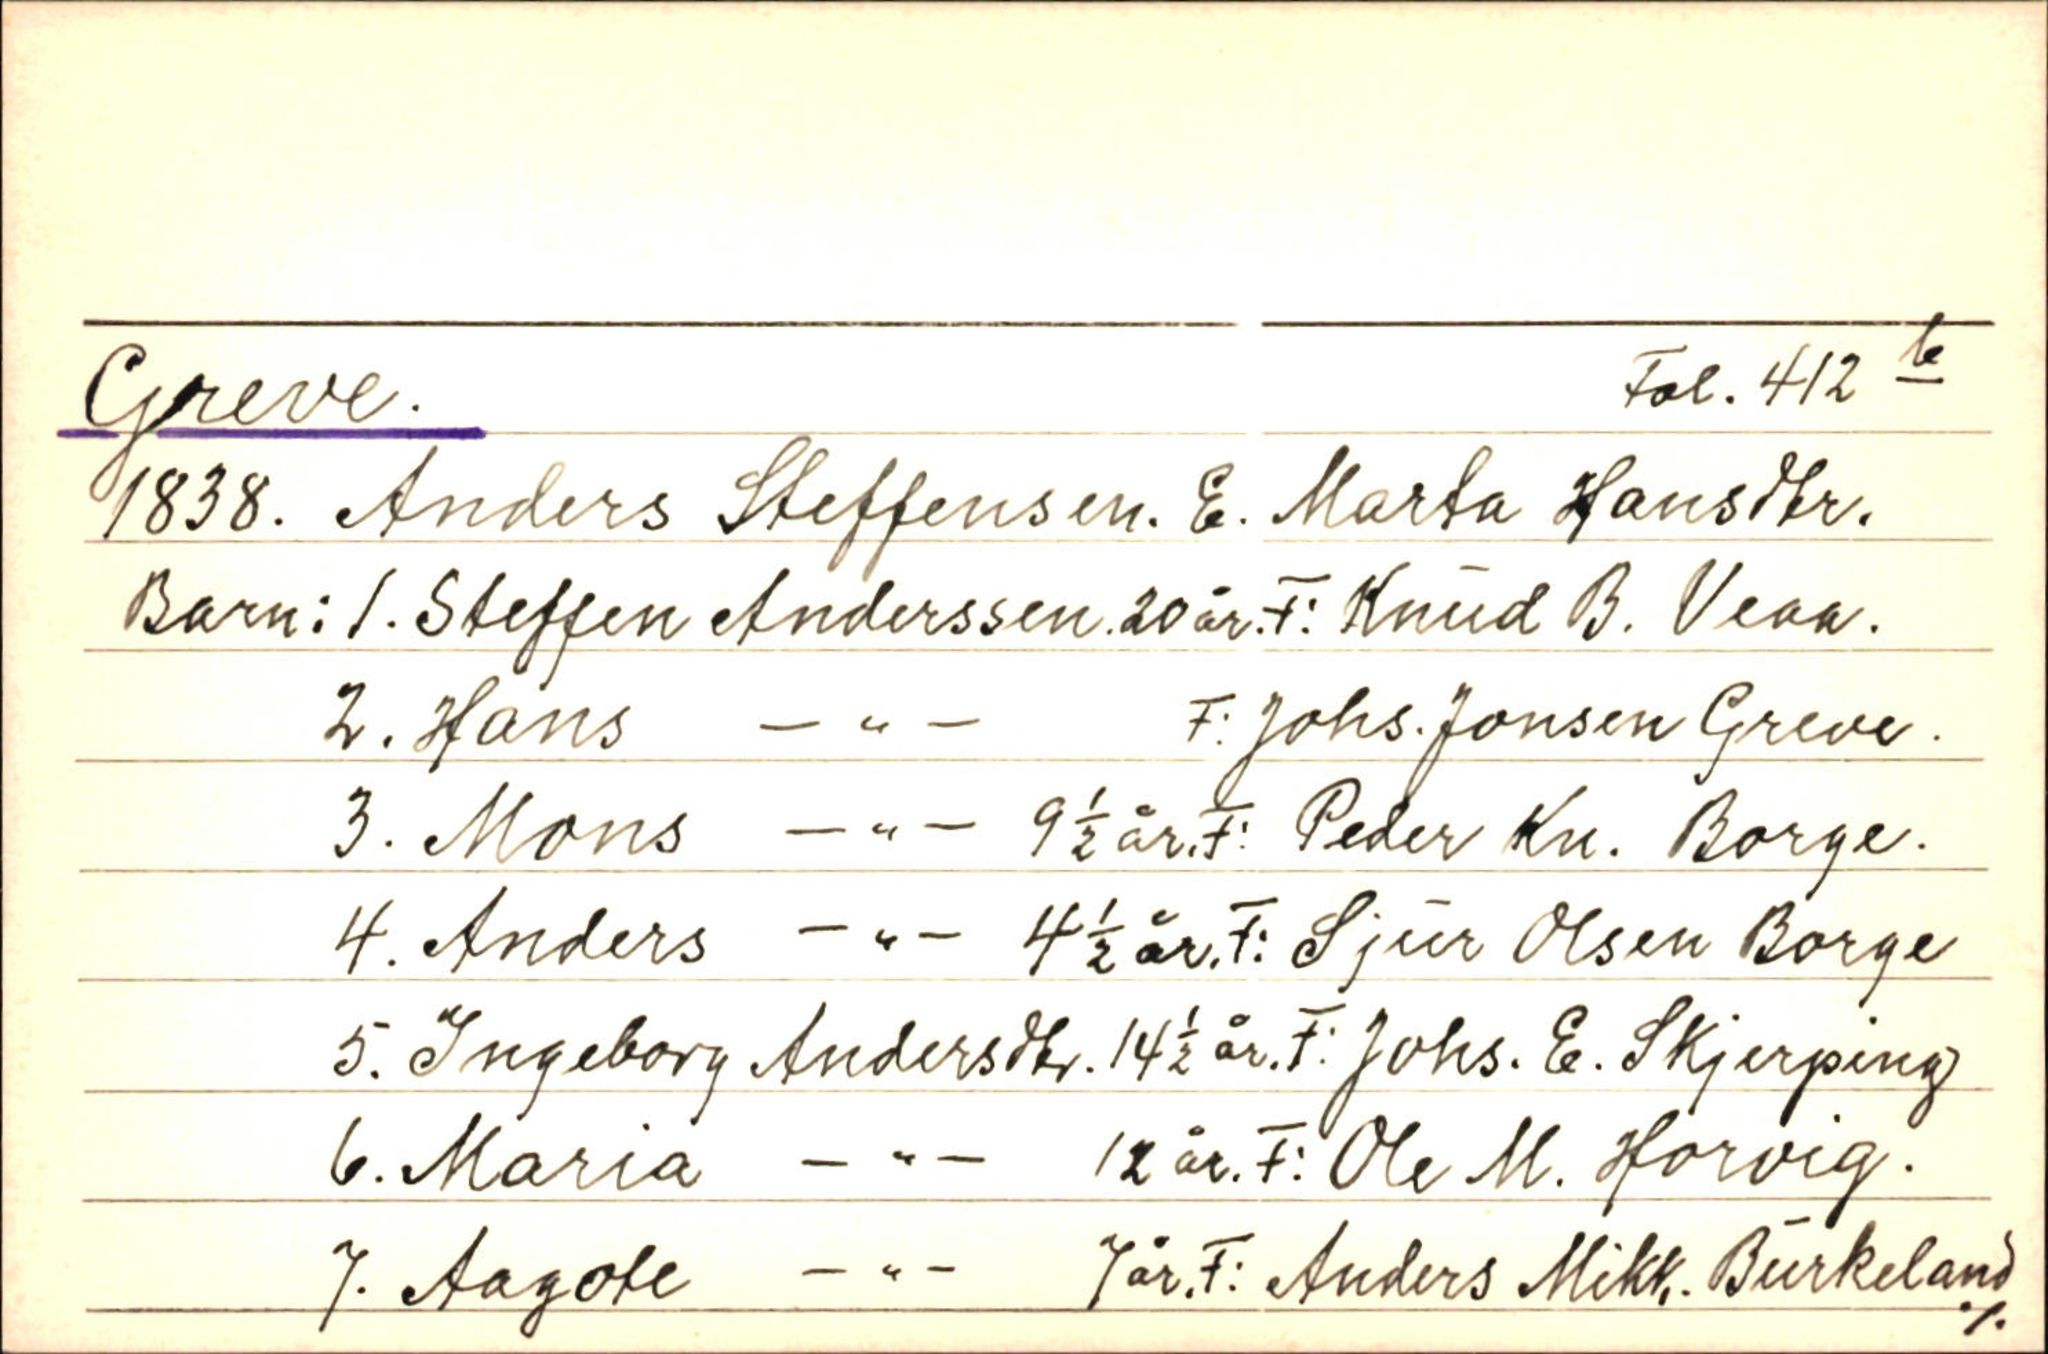 Greve. Fol. 412 b
1838. Anders Steffensen. E. Marta Hansdtr.
Barn: 1. Steffen Anderssen. 20 år. F: Knud B. Veaa.
2. Hans — " — F: Johs. Jonsen Greve.
3. Mons — " — 9 1/2 år. F: Peder Kn. Borge.
4. Anders — " — 4 1/2 år. F: Sjur Olsen Borge
5. Ingeborg Andersdtr. 14 1/2 år. F: Johs. E. Skjerping
6. Maria — " — 12 år. F: Ole M. Horvig.
7. Aagote — " — 7 år. F: Anders Mikk. Burkeland
./.